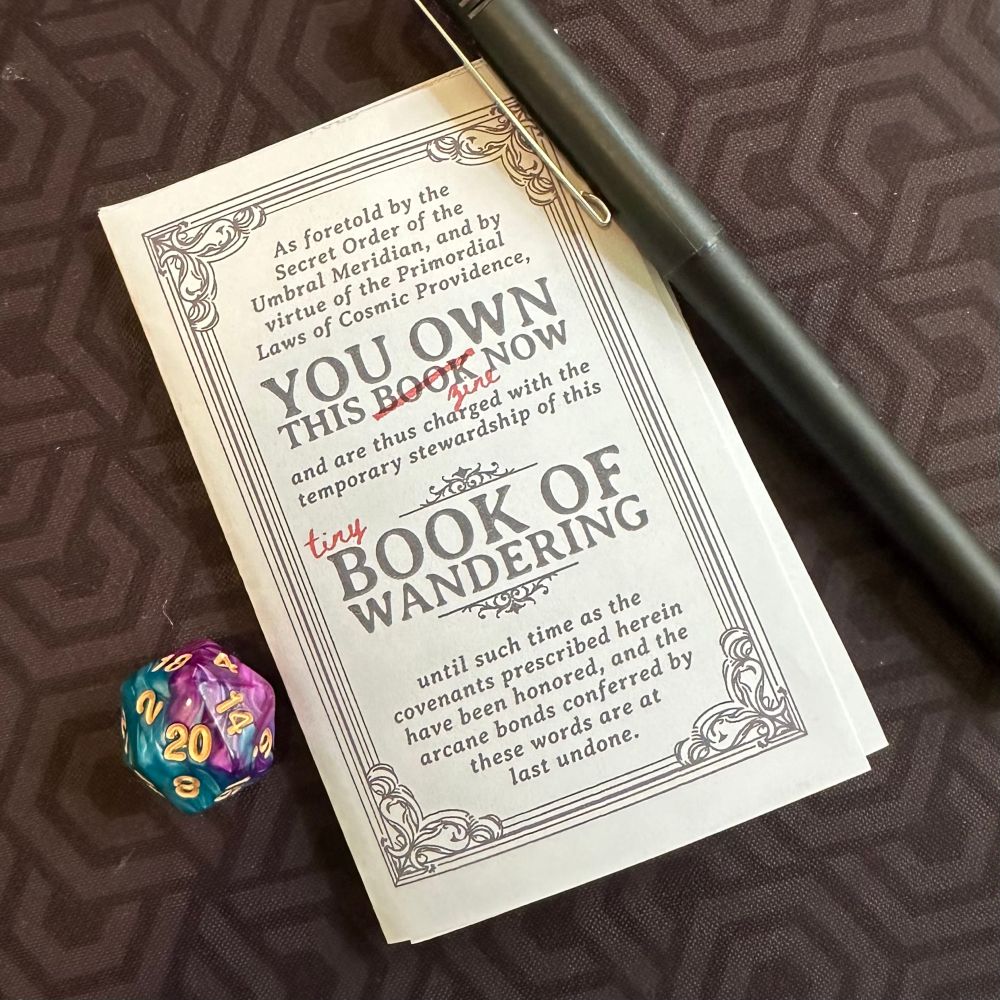 As foretold by the
Secret Order of the
Umbral Meridian, and by
virtue of the Primordial
Laws of Cosmic Providence,
YOU OWN
THIS BOOK NOW
zine
and are thus charged with the
temporary stewardship of this
tiny
BOOK OF
WANDERING
until such time as the
covenants prescribed herein
have been honored, and the
arcane bonds conferred by
these words are at
last undone.
18
4
2
14
20
8